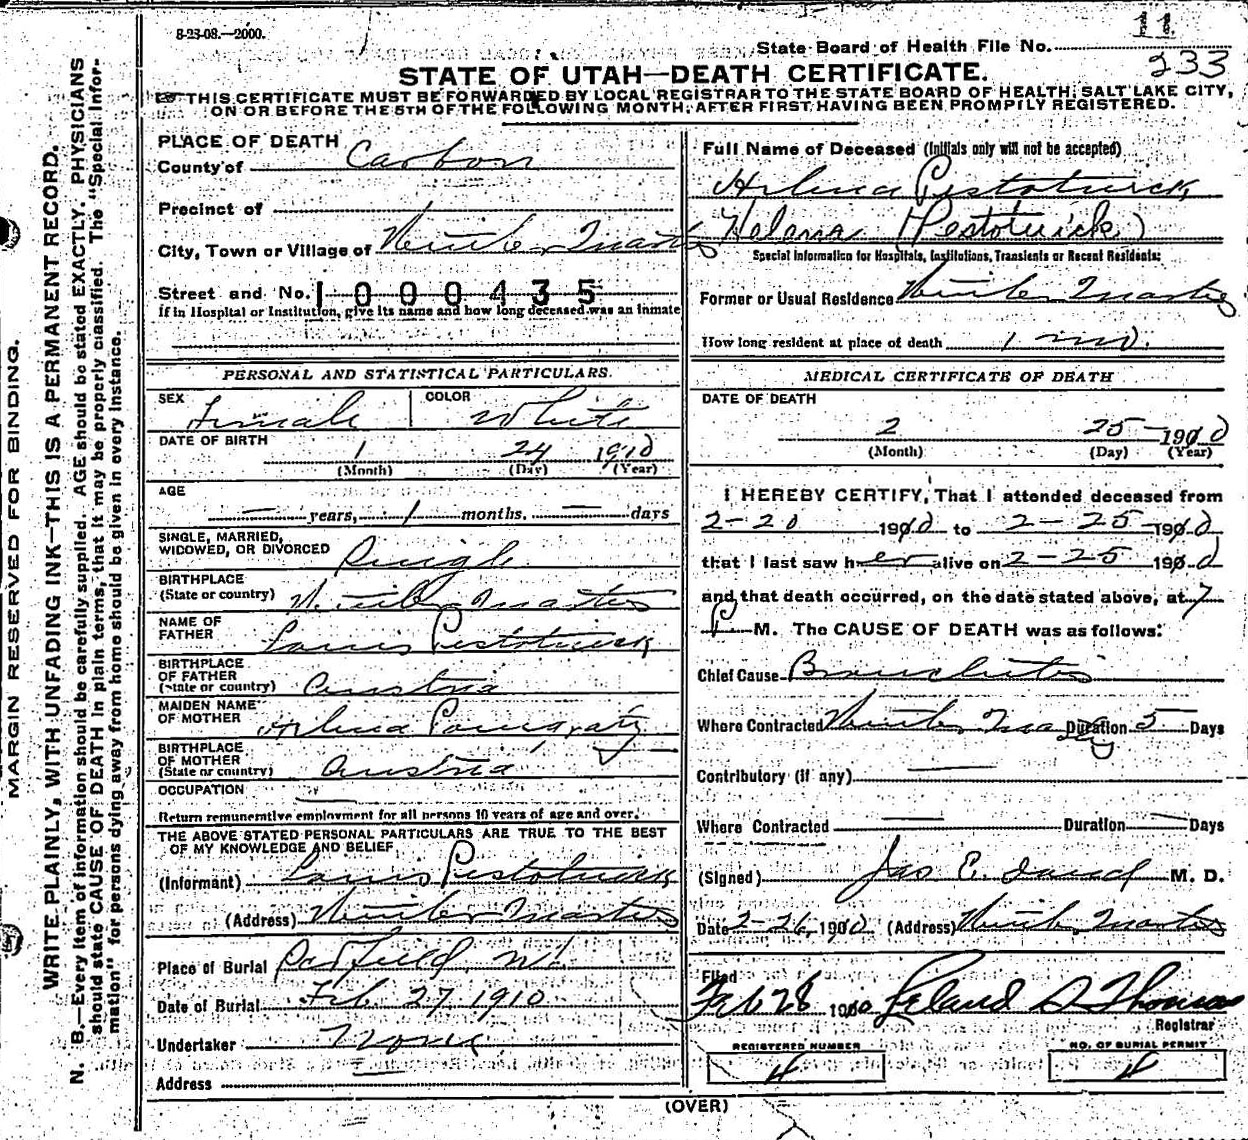 8-23-08.—2000.
11
State Board of Health File No.
233
STATE OF UTAH—DEATH CERTIFICATE.
THIS CERTIFICATE MUST BE FORWARDED BY LOCAL REGISTRAR TO THE STATE BOARD OF HEALTH, SALT LAKE CITY,
ON OR BEFORE THE 5TH OF THE FOLLOWING MONTH, AFTER FIRST HAVING BEEN PROMPTLY REGISTERED.
MARGIN RESERVED FOR BINDING.
WRITE PLAINLY, WITH UNFADING INK—THIS IS A PERMANENT RECORD.
N. B.—Every item of information should be carefully supplied. AGE should be stated EXACTLY. PHYSICIANS
should state CAUSE OF DEATH in plain terms, that it may be properly classified. The "Special Infor-
mation" for persons dying away from home should be given in every instance.
PLACE OF DEATH
County of Carbon
Precinct of
City, Town or Village of Winter Quarters
Street and No. 1000435
If in Hospital or Institution, give its name and how long deceased was an inmate
PERSONAL AND STATISTICAL PARTICULARS.
SEX Female COLOR White
DATE OF BIRTH 1 24 1910
(Month) (Day) (Year)
AGE
— years, 1 months. — days
SINGLE, MARRIED,
WIDOWED, OR DIVORCED Single
BIRTHPLACE
(State or country) Winter Quarters
NAME OF
FATHER Louis Pestotnick
BIRTHPLACE
OF FATHER
(State or country) Austria
MAIDEN NAME
OF MOTHER
BIRTHPLACE
OF MOTHER
(State or country) Austria
OCCUPATION —
Return remunerative employment for all persons 10 years of age and over.
THE ABOVE STATED PERSONAL PARTICULARS ARE TRUE TO THE BEST
OF MY KNOWLEDGE AND BELIEF
(Informant) Louis Pestotnick
(Address) Winter Quarters
Place of Burial
Date of Burial Feb. 27 1910
Undertaker None
Address
Full Name of Deceased (Initials only will not be accepted)
Hilena Pestotnick
Helena (Pestotnick)
Special Information for Hospitals, Institutions, Transients or Recent Residents:
Former or Usual Residence Winter Quarters
How long resident at place of death 1 mo.
MEDICAL CERTIFICATE OF DEATH
DATE OF DEATH
2 25 1910
(Month) (Day) (Year)
I HEREBY CERTIFY, That I attended deceased from
2-20 1910 to 2-25 1910
that I last saw her alive on 2-25 1910
and that death occurred, on the date stated above, at 7
P M. The CAUSE OF DEATH was as follows:
Chief Cause Bronchitis
Where Contracted Winter Quarters Duration 5 Days
Contributory (if any) —
Where Contracted — Duration — Days
(Signed) Jas E. M. D.
Date 2-26, 1910 (Address) Winter Quarters
Filed
Feb 28 1910 Leland S Thomas
Registrar
REGISTERED NUMBER
4
NO. OF BURIAL PERMIT
4
(OVER)